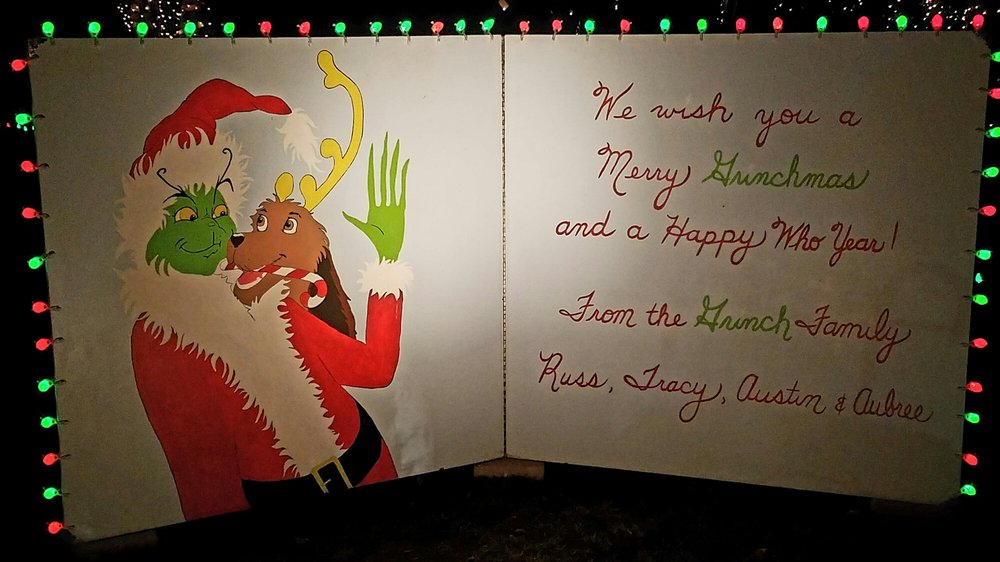 We wish you a
Merry Grinchmas
and a Happy Who Year!
From the Grinch Family
Russ, Tracy, Austin & Aubree